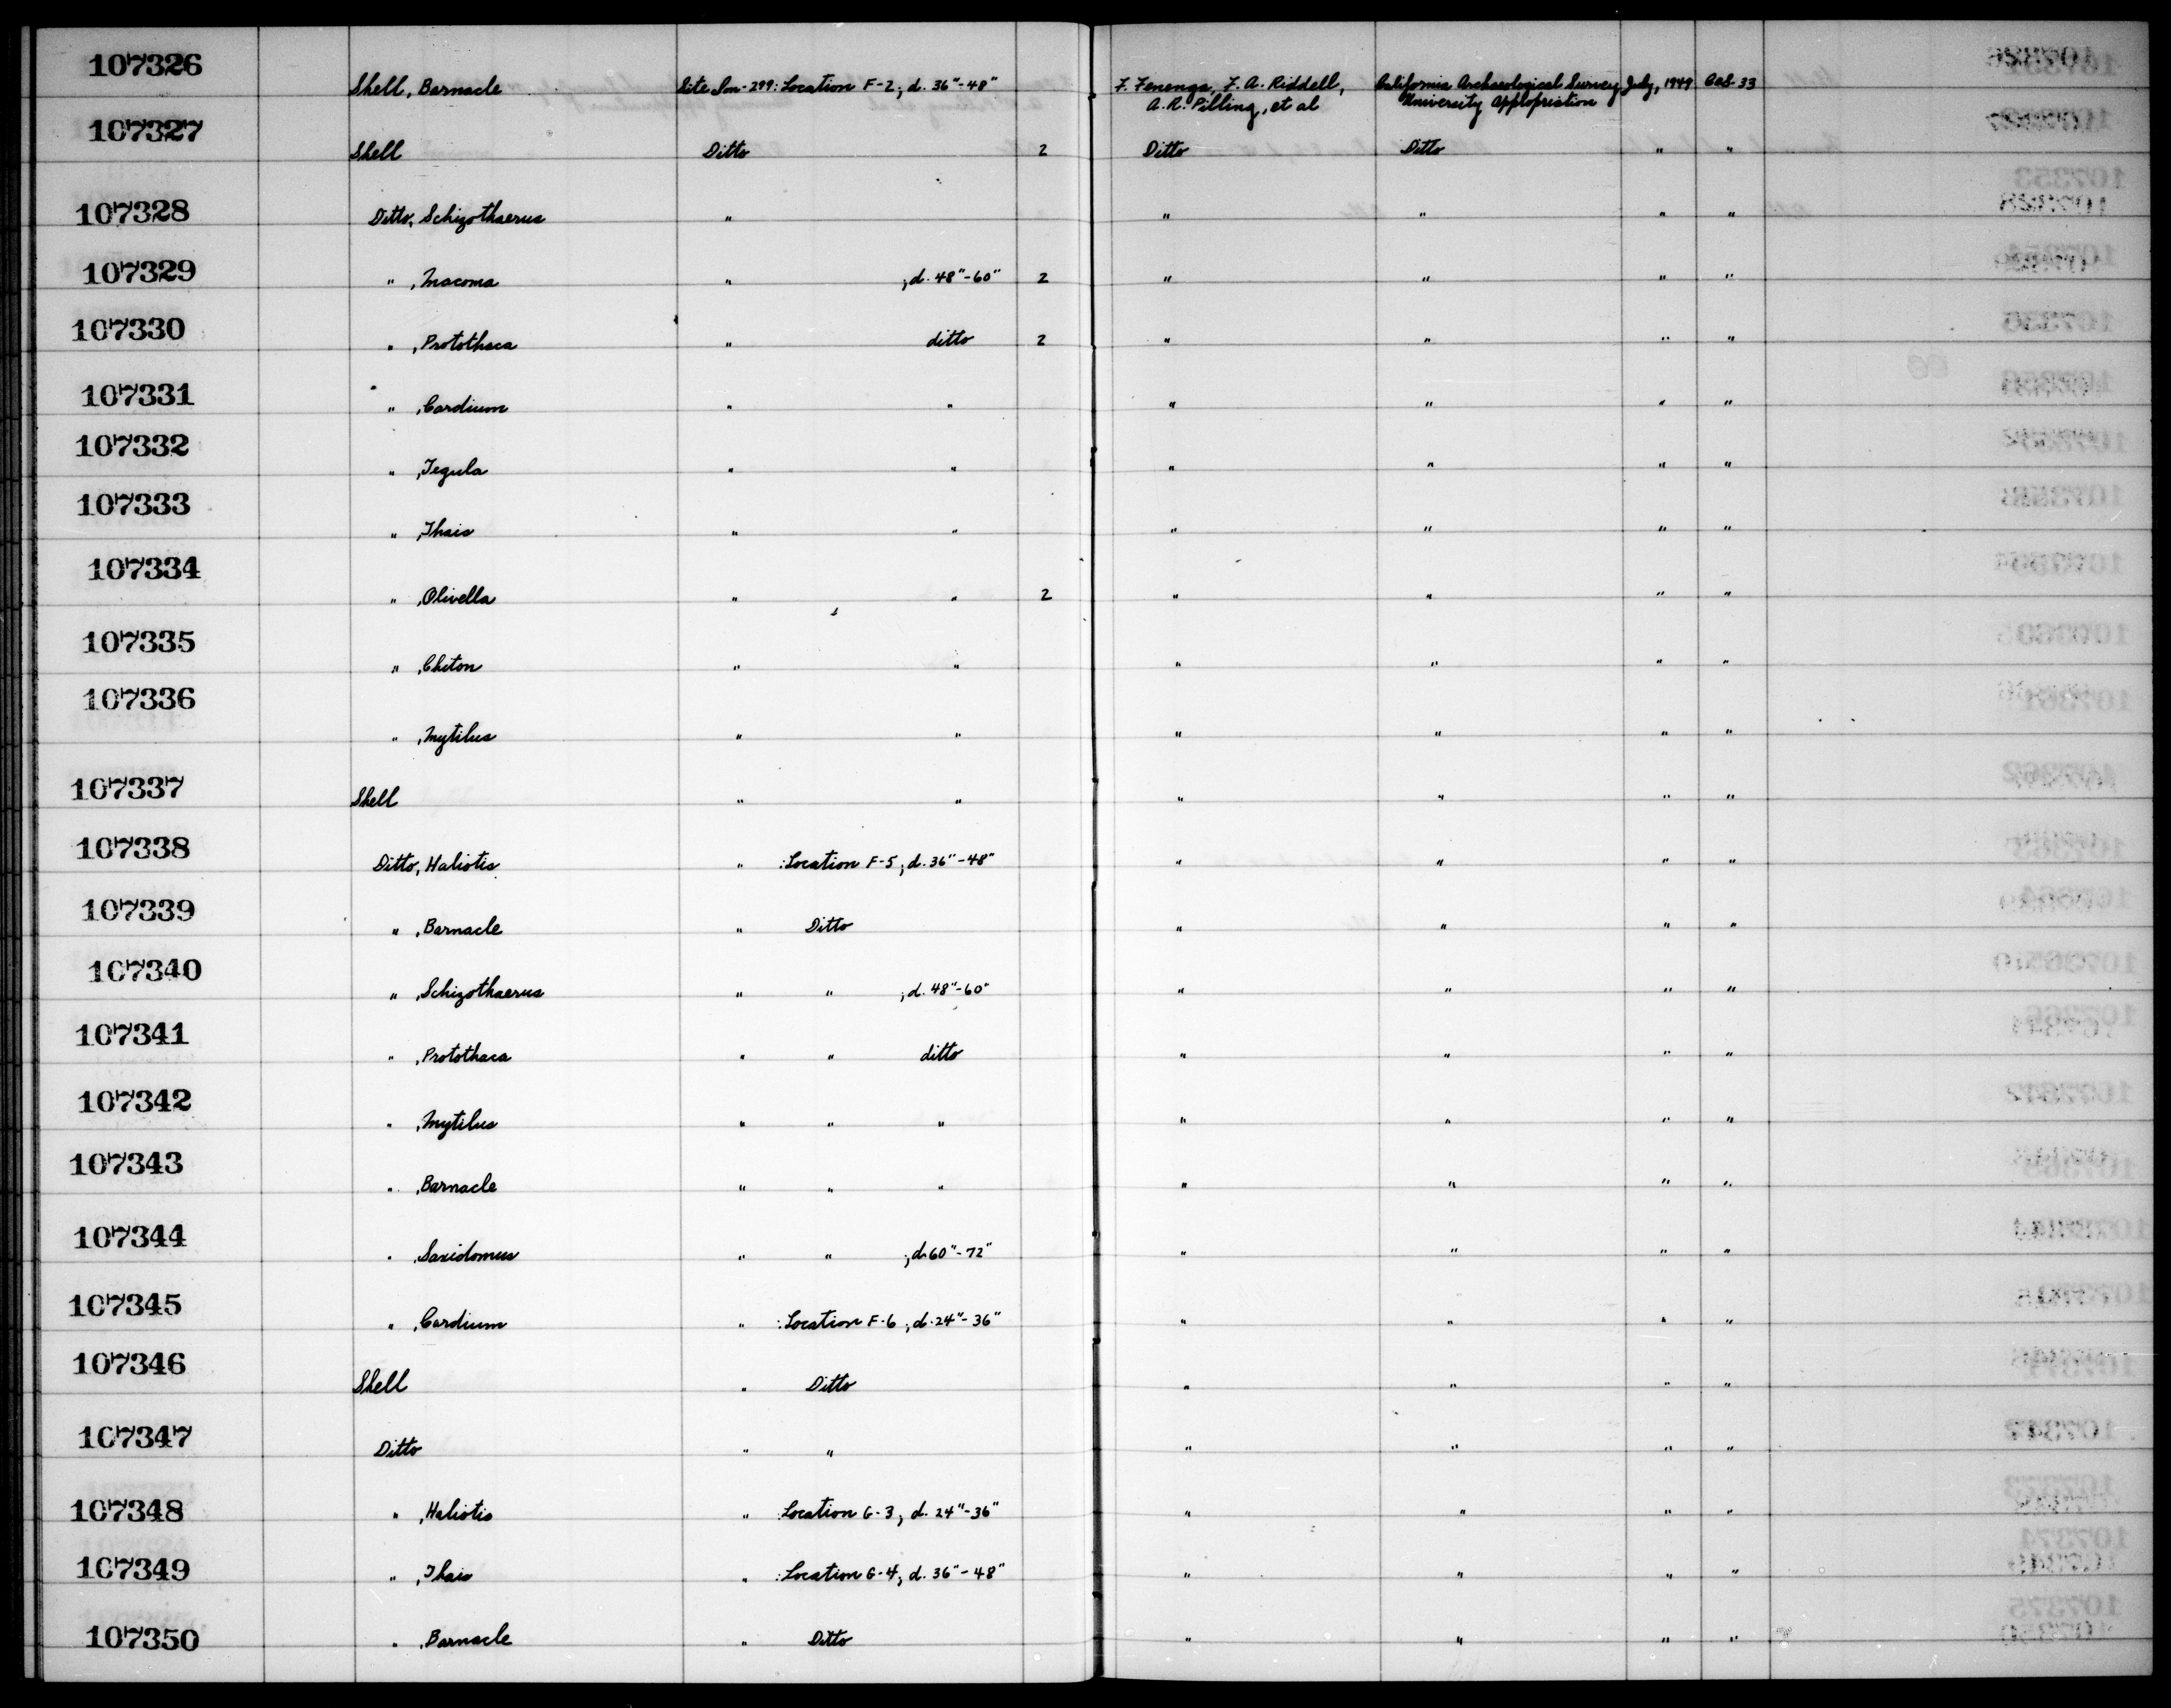 107326 Shell, Barnacle Site Son-299: Location F-2; d. 36"-48" F. Fenenga, F. A. Riddell, California Archaeological Survey July, 1949 Cat 33
A. R. Pilling, et al University Appropriation
107327 Shell Ditto 2 Ditto Ditto " "
107328 Ditto, Schizothaerus " " " " "
107329 " , Macoma " ; d. 48"-60" 2 " " " "
107330 " , Protothaca " ditto 2 " " " "
107331 " , Cardium " " " " " "
107332 " , Tegula " " " " " "
107333 " , Thais " " " " " "
107334 " , Olivella " " 2 " " " "
107335 " , Chiton " " " " " "
107336 " , Mytilus " " " " " "
107337 Shell " " " " " "
107338 Ditto, Haliotis " : Location F-5; d. 36"-48" " " " "
107339 " , Barnacle " Ditto " " " "
107340 " , Schizothaerus " " ; d. 48"-60" " " " "
107341 " , Protothaca " " ditto " " " "
107342 " , Mytilus " " " " " " "
107343 " , Barnacle " " " " " " "
107344 " , Saxidomus " " ; d. 60"-72" " " " "
107345 " , Cardium " : Location F-6; d. 24"-36" " " " "
107346 Shell " Ditto " " " "
107347 Ditto " " " " " "
107348 " , Haliotis " : Location G-3; d. 24"-36" " " " "
107349 " , Thais " : Location G-4; d. 36"-48" " " " "
107350 " , Barnacle " Ditto " " " "